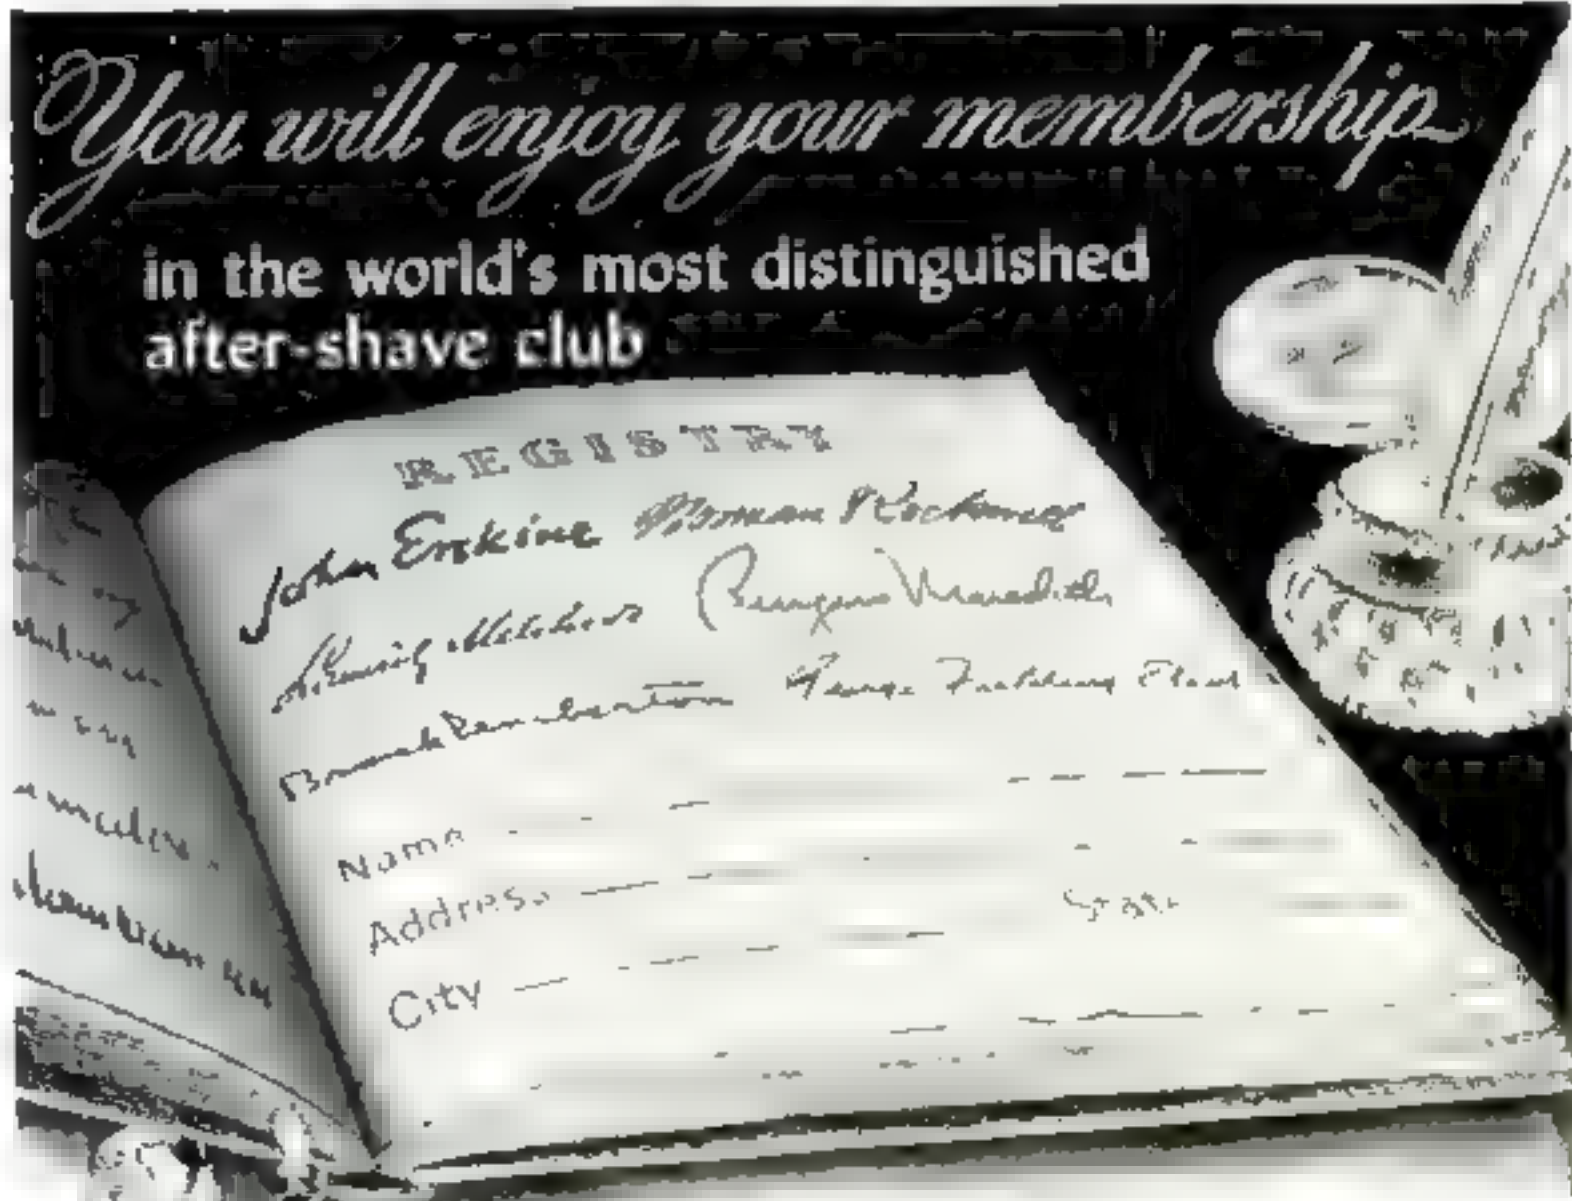 You will enjoy your membership
in the world's most distinguished
after-shave club
REGISTRY
John Erskine Norman Rockwell
Lauritz Melchior Burgess Meredith
Brock Pemberton George Fielding Eliot
Name
Address
City State